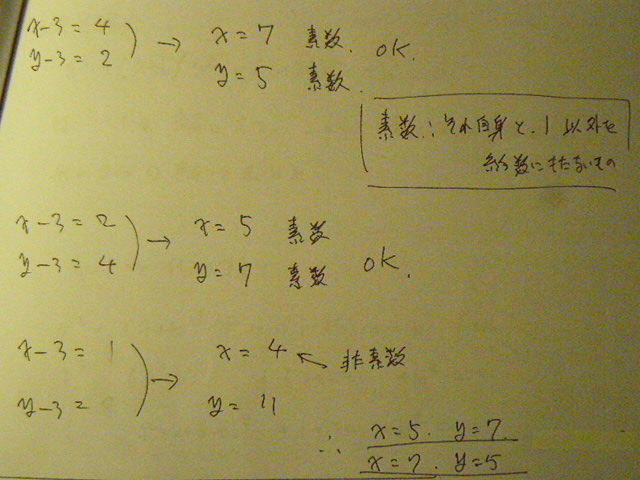 x-3=4 → x=7 素数. OK.
y-3=2 y=5 素数.
素数:それ自身と、1以外を
約数にもたないもの
x-3=2 → x=5 素数
y-3=4 y=7 素数 OK.
x-3=1 → x=4 ← 非素数
y-3= y=11
∴ x=5. y=7.
x=7. y=5